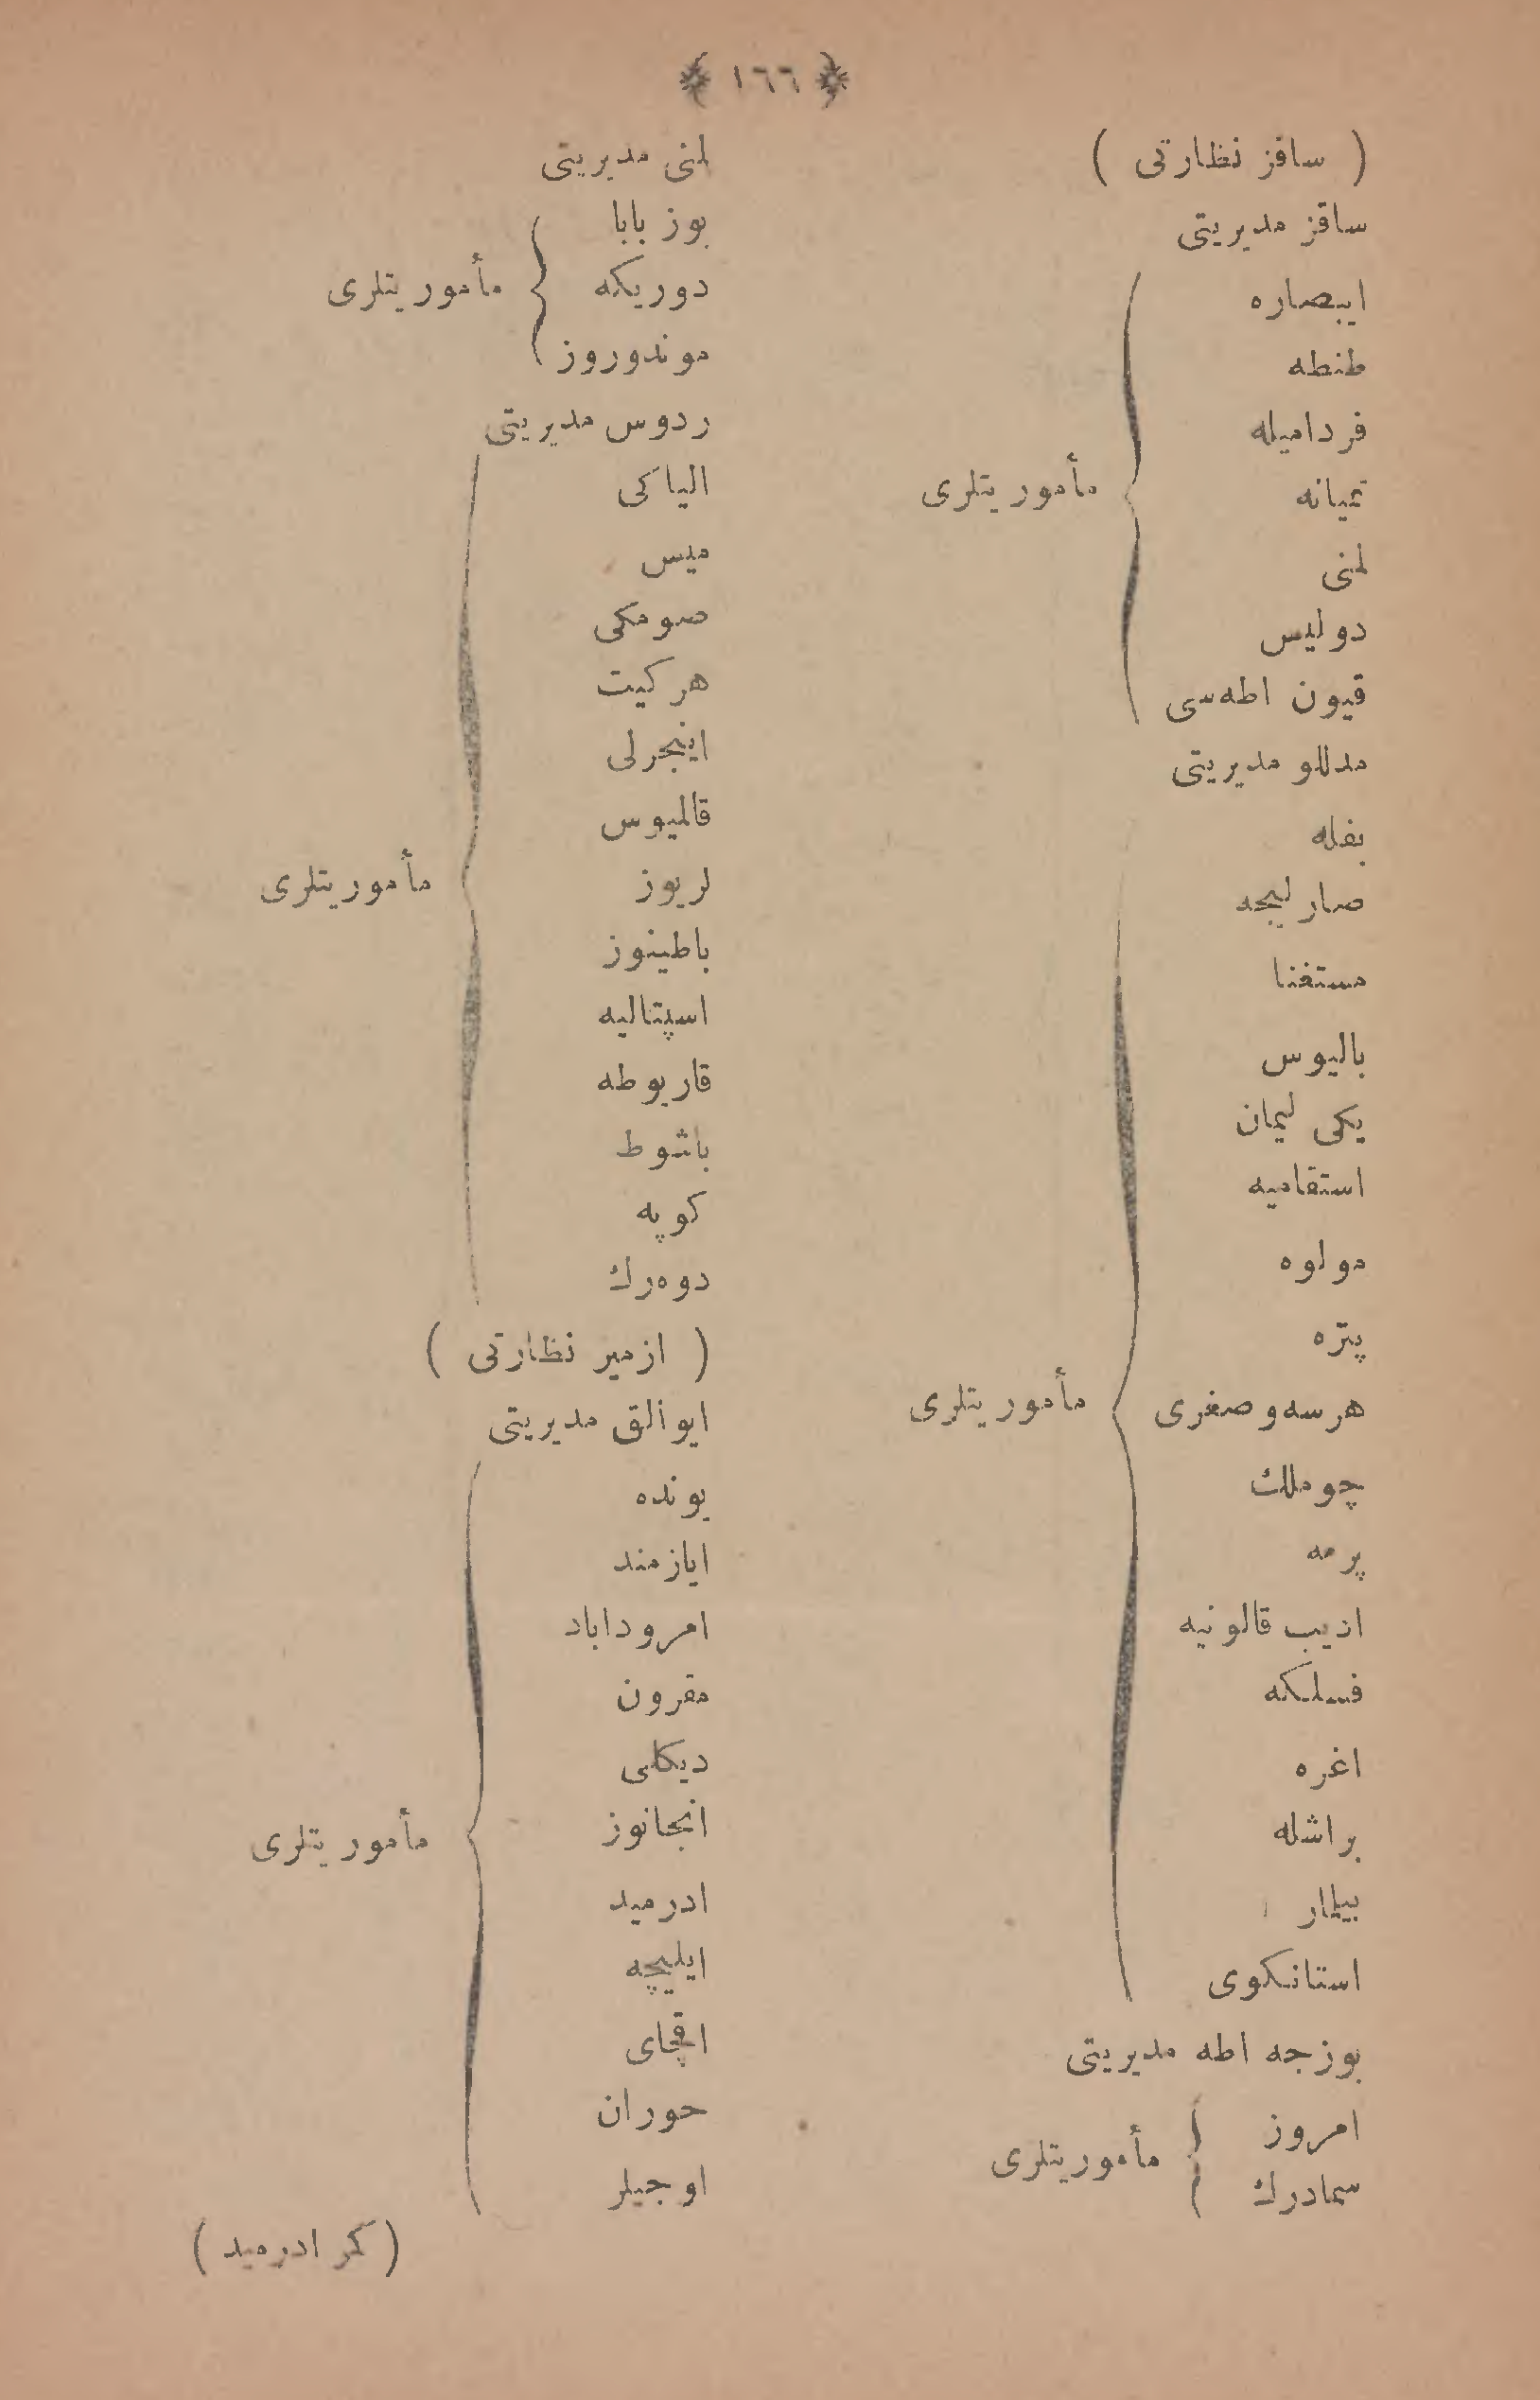 ١٦٦
( ساقز نظارتی )
ساقز مدیریتی
ایبصاره
طنطه
فردامیله
تمیانه
لمنی
دولیس
قیون اطه‌سی
مأموریتلری
مدللو مدیریتی
بفله
صارلیجه
مستغنا
بالیوس
یکی لیمان
استقامیه
مولوه
پتره
هرسه‌وصغری
چوملك
پرمه
ادیب قالونیه
فسلکه
اغره
براشله
بیلمار
استانکوی
مأموریتلری
بوزجه اطه مدیریتی
امروز
سمادرك
مأموریتلری
لمنی مدیریتی
بوز بابا
دوریکه
موندوروز
مأموریتلری
ردوس مدیریتی
الیاکی
میس
صومکی
هرکیت
اینجرلی
قالمیوس
لریوز
باطینوز
اسپتالیه
قاربوطه
باشوط
کوپه
دوه‌رك
مأموریتلری
( ازمیر نظارتی )
ایوالق مدیریتی
یونده
ایازمند
امروداباد
مقرون
دیکلی
انجانوز
ادرمید
ایلیچه
اقچای
حوران
اوجیلر
مأموریتلری
( کمر ادرمید )